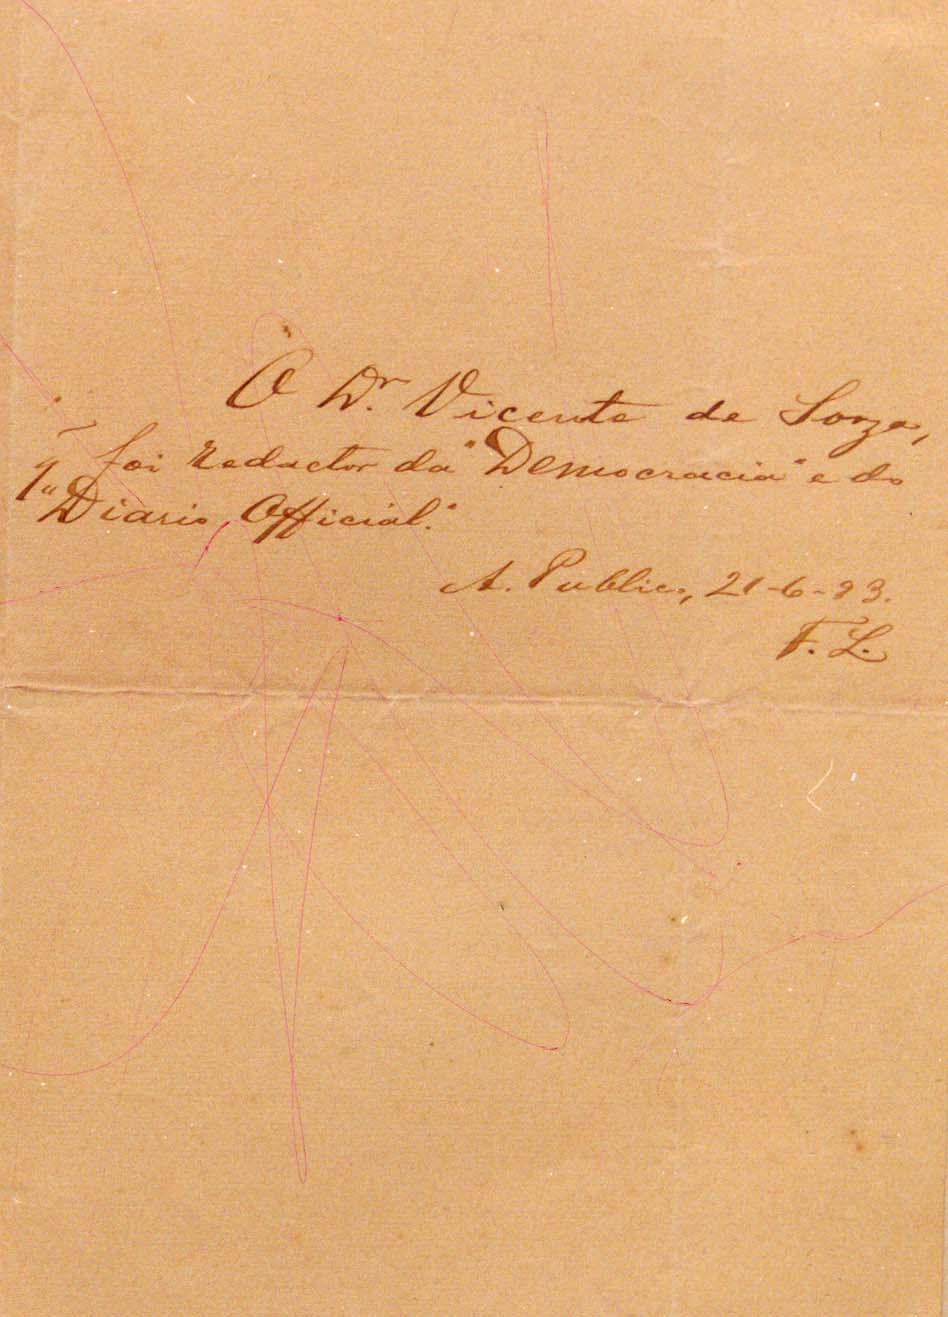 O Dr. Vicente de Souza,
foi redactor da "Democracia" e do
"Diario Official."
A. Publico, 21-6-93.
F. L.